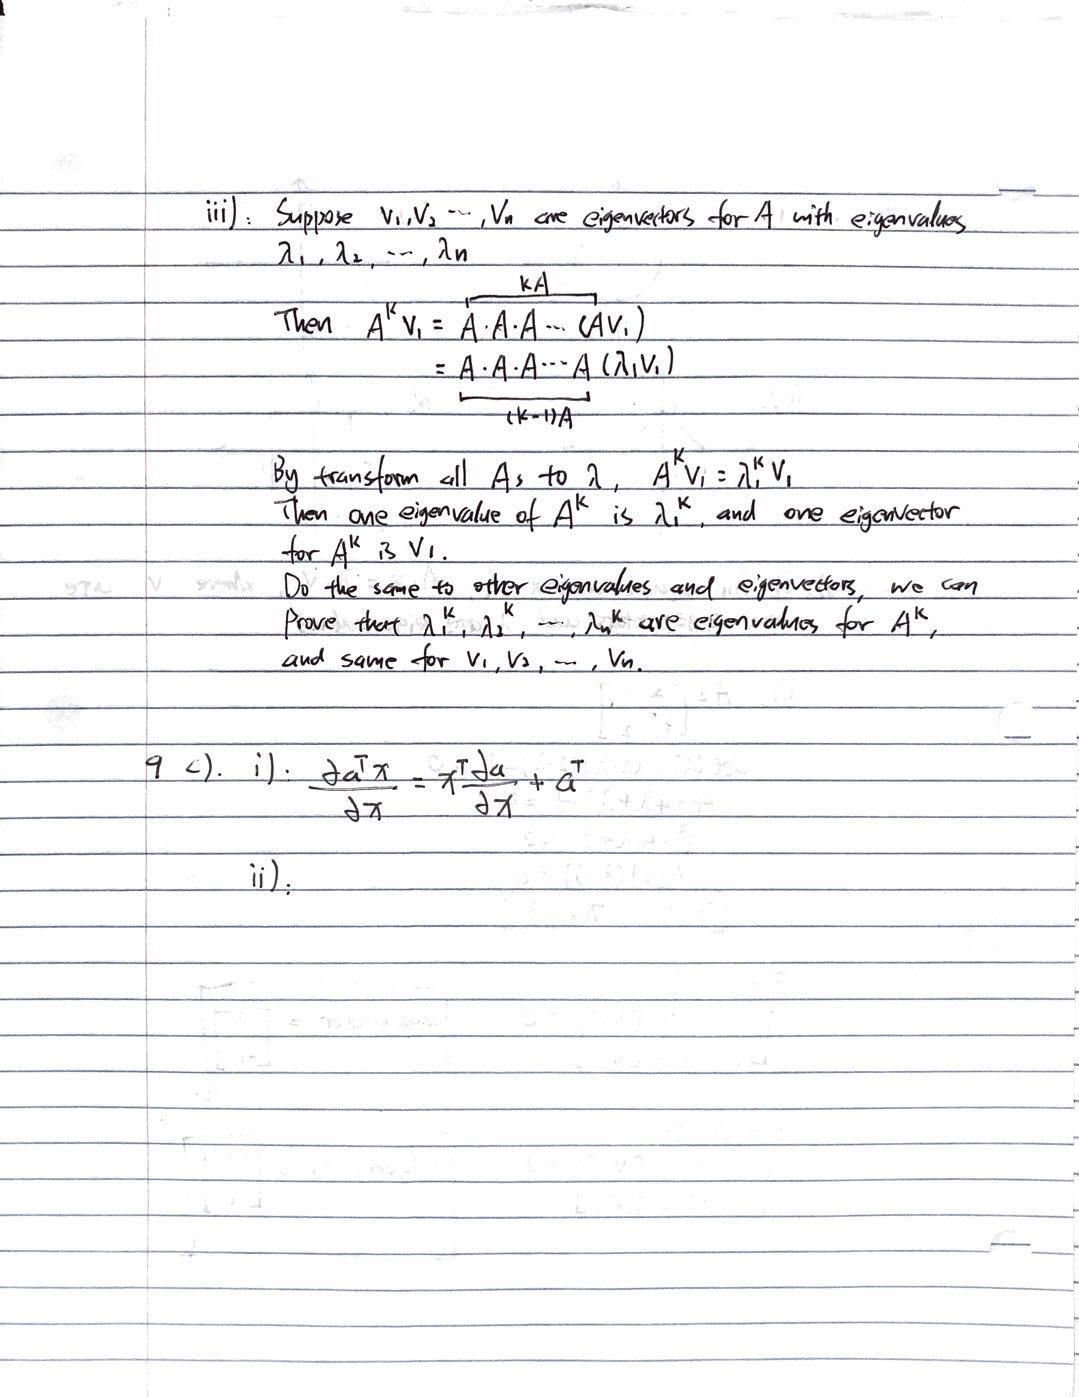 iii). Suppose V₁,V₂ ..., Vn are eigenvectors for A with eigenvalues
λ₁, λ₂, ..., λn
kA
Then A^K V₁ = A·A·A... (AV₁)
= A·A·A...A (λ₁V₁)
(K-1)A
By transform all As to λ, A^K V₁ = λ₁^K V₁
Then one eigenvalue of A^K is λ₁^K, and one eigenvector
for A^K is V₁.
Do the same to other eigenvalues and eigenvectors, we can
Prove that λ₁^K, λ₂^K, ..., λn^K are eigenvalues for A^K,
and same for V₁, V₂, ..., Vn.
9 c). i). ∂aᵀx/∂x = xᵀ ∂a/∂x + aᵀ
ii).